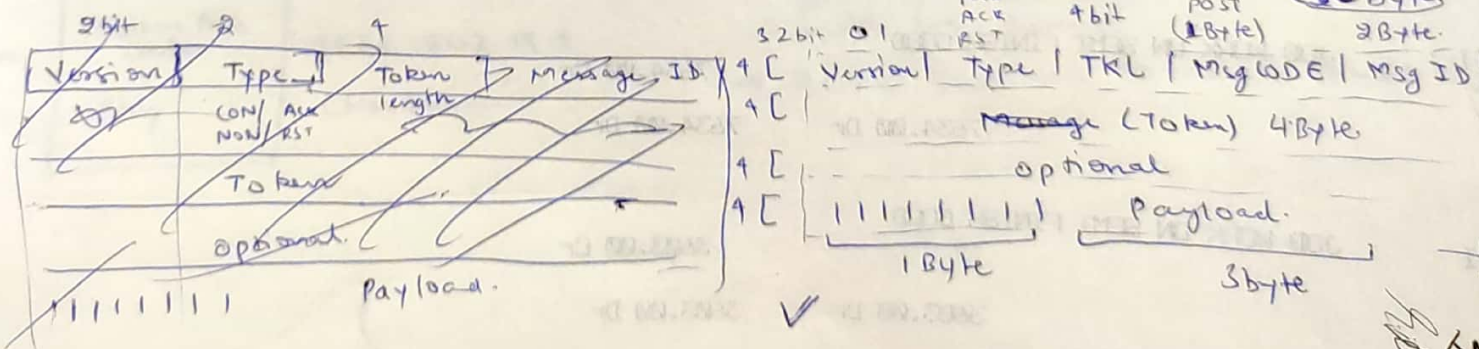 2bit 2 4
Version Type Token length Message ID
CON/ ACK
NON/ RST
Token
optional
11111111 Payload.
ACK 4bit POST
32bit 01 RST (1Byte) 2Byte.
4 [ Version | Type | TKL | Msg CODE | Msg ID
4 [ Message (Token) 4Byte
4 [ optional
4 [ 11111111 Payload.
1Byte 3byte